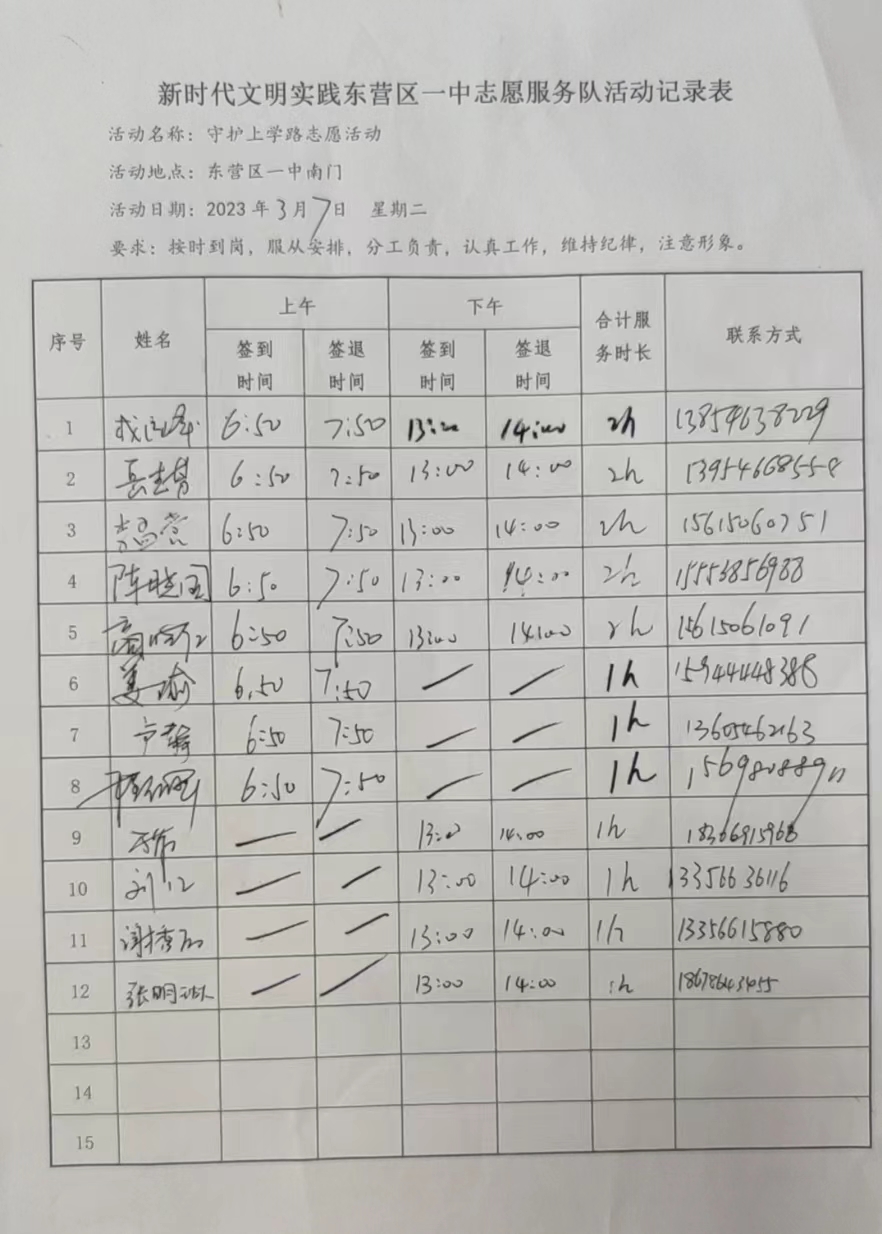 新时代文明实践东营区一中志愿服务队活动记录表
活动名称：守护上学路志愿活动
活动地点：东营区一中南门
活动日期：2023年3月7日 星期二
要求：按时到岗，服从安排，分工负责，认真工作，维持纪律，注意形象。
序号 姓名 上午 下午 合计服务时长 联系方式
签到时间 签退时间 签到时间 签退时间
1 6:50 7:50 13:00 14:00 2h 13854638229
2 6:50 7:50 13:00 14:00 2h 13954668558
3 6:50 7:50 13:00 14:00 2h 15615060751
4 陈晓国 6:50 7:50 13:00 14:00 2h 15553856988
5 6:50 7:50 13:00 14:00 2h 15615061091
6 姜瑜 6:50 7:50 — — 1h 15944448388
7 6:50 7:50 — — 1h 13605462163
8 6:50 7:50 — — 1h
9 — — 13:00 14:00 1h 18366915968
10 — — 13:00 14:00 1h 13356636116
11 — — 13:00 14:00 1h 13356615880
12 — — 13:00 14:00 1h
13
14
15